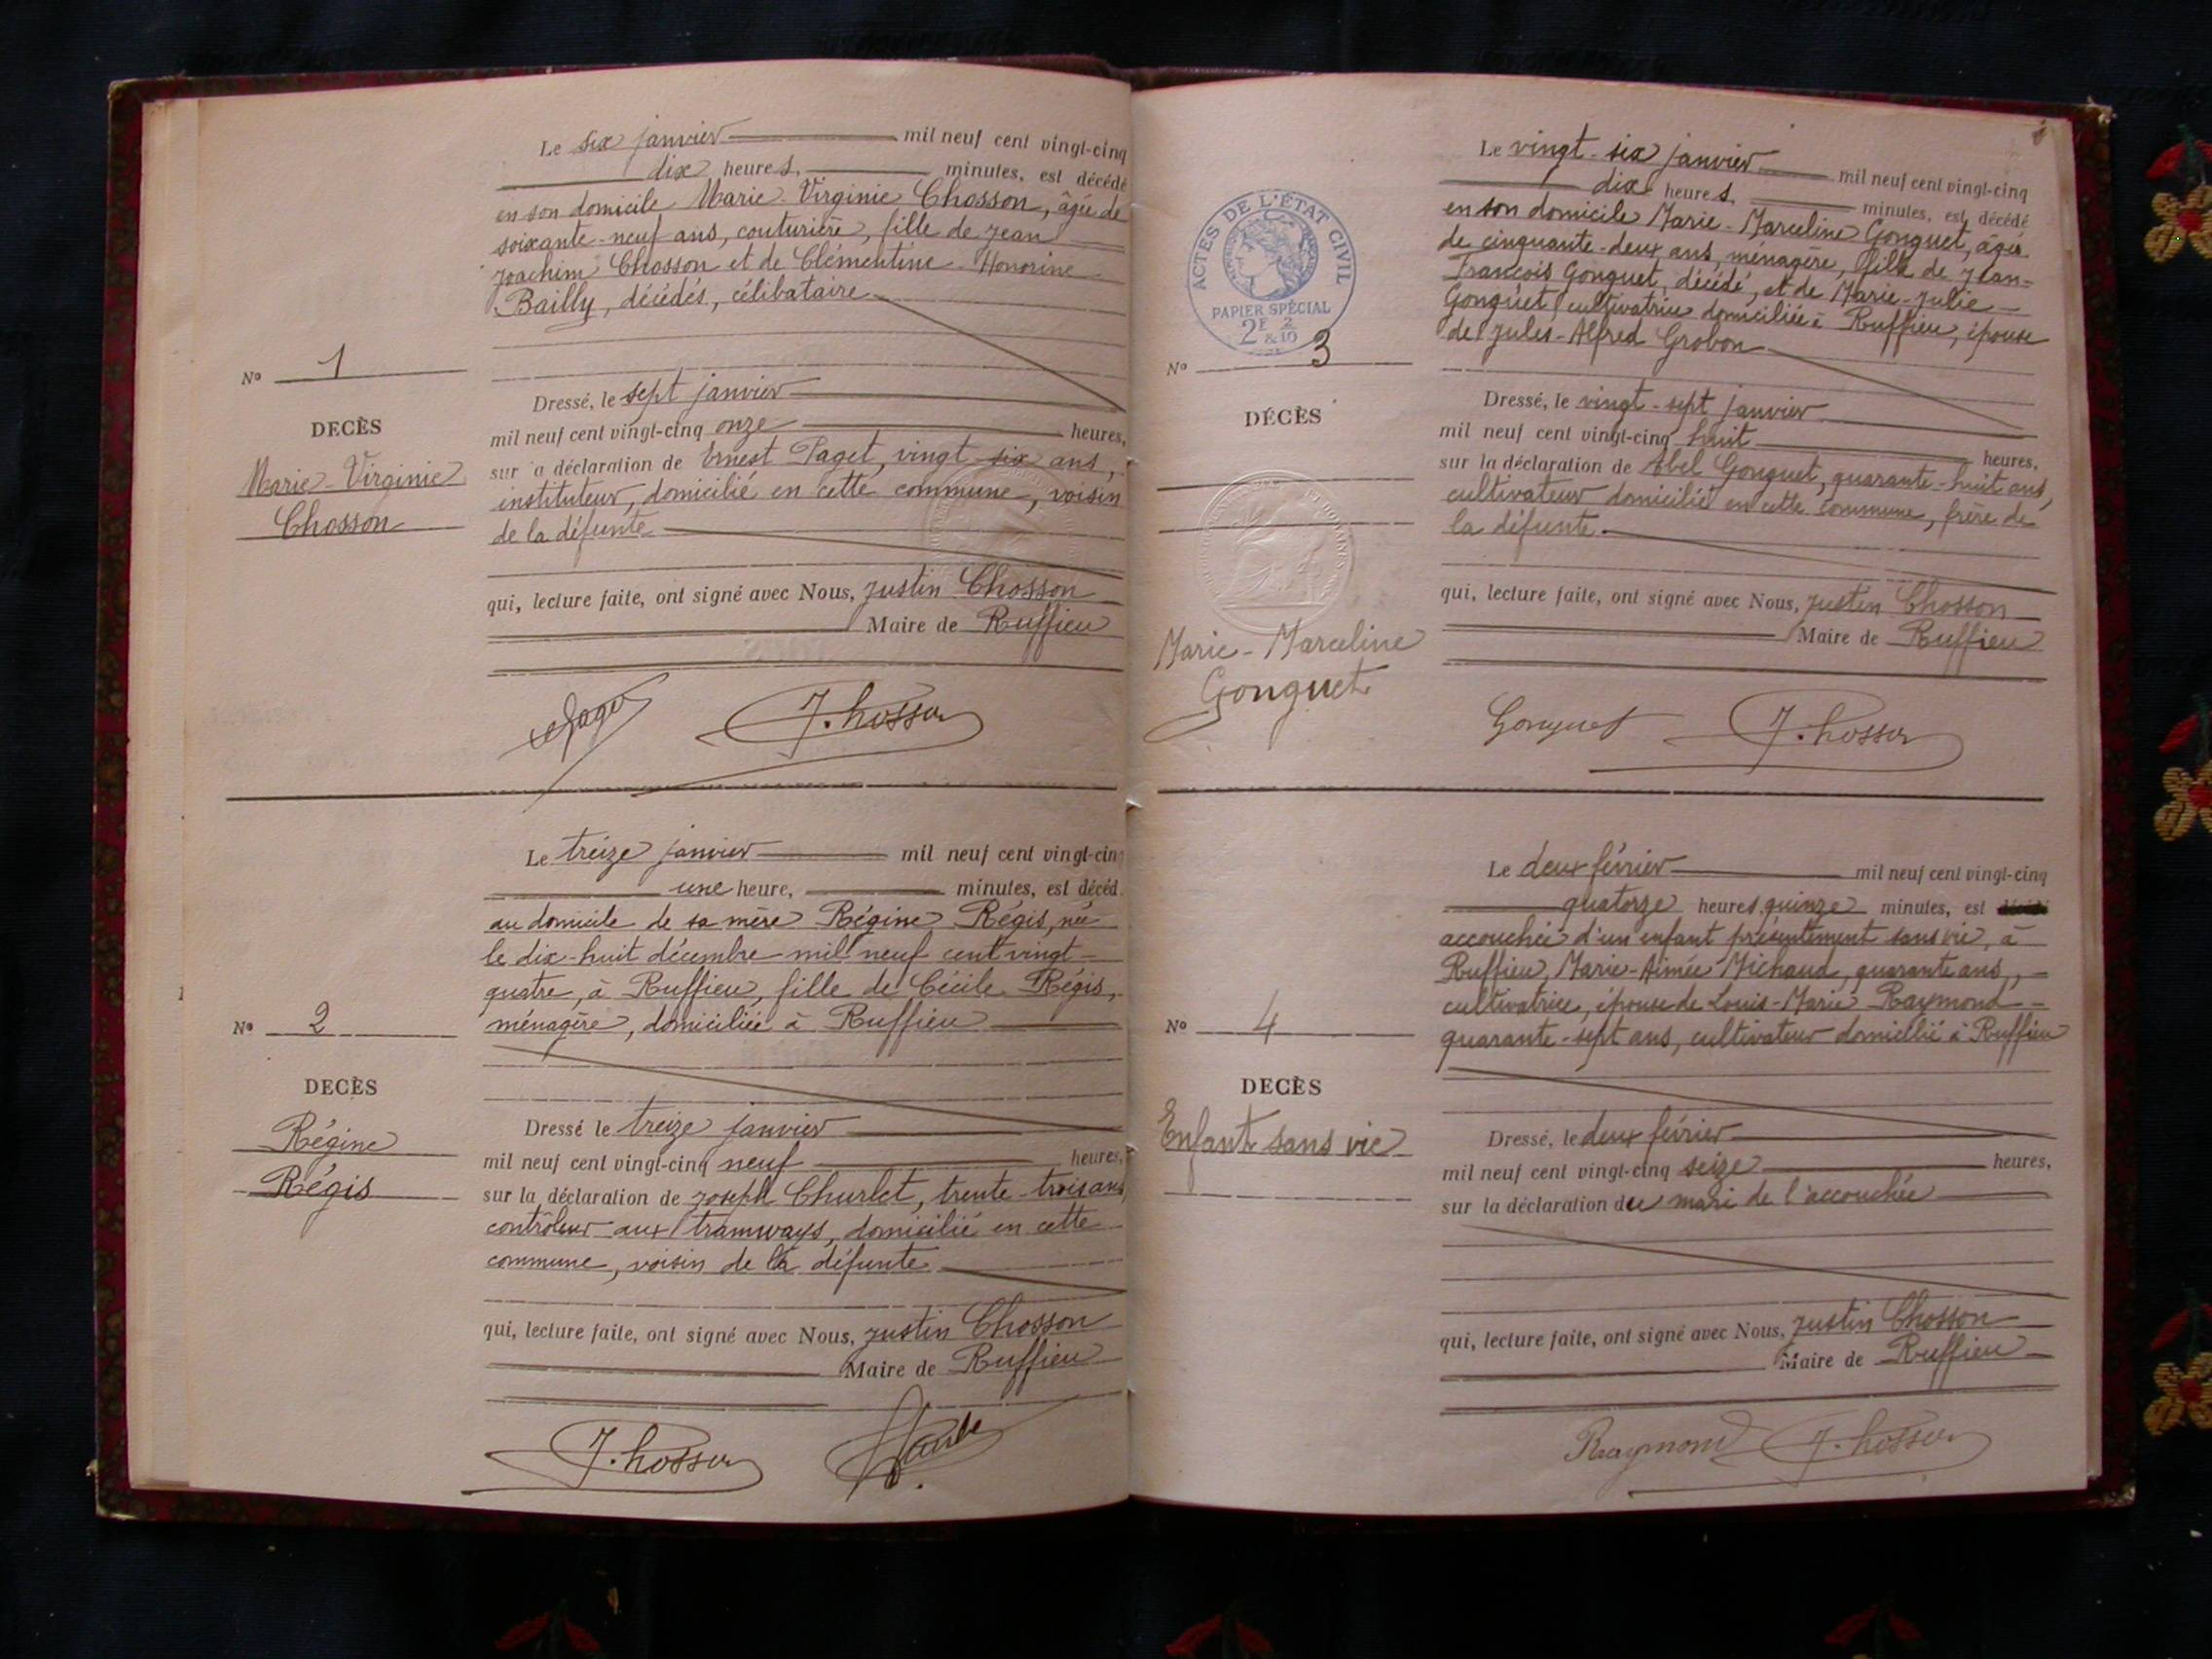 Le six janvier mil neuf cent vingt-cinq
dix heures, minutes, est décédé
en son domicile Marie-Virginie Chosson, âgée de
soixante-neuf ans, couturière, fille de Jean
Joachim Chosson et de Clémentine-Honorine
Bailly, décédés, célibataire
No 1
DECÈS
Marie-Virginie
Chosson
Dressé, le sept janvier
mil neuf cent vingt-cinq onze heures,
sur la déclaration de Ernest Paget, vingt-six ans,
instituteur, domicilié en cette commune, voisin
de la défunte
qui, lecture faite, ont signé avec Nous, Justin Chosson
Maire de Ruffieu
J. Chosson
Le treize janvier mil neuf cent vingt-cinq
une heure, minutes, est décéd
au domicile de sa mère Régine Régis, née
le dix-huit décembre mil neuf cent vingt-
quatre, à Ruffieu, fille de Cécile Régis,
ménagère, domiciliée à Ruffieu
No 2
DECÈS
Régine
Régis
Dressé le treize janvier
mil neuf cent vingt-cinq neuf heures,
sur la déclaration de Joseph Churlet, trente-trois ans,
contrôleur aux tramways, domicilié en cette
commune, voisin de la défunte
qui, lecture faite, ont signé avec Nous, Justin Chosson
Maire de Ruffieu
J. Chosson
ACTES DE L'ÉTAT CIVIL
PAPIER SPÉCIAL
2F & 2/10
Le vingt-six janvier mil neuf cent vingt-cinq
dix heures, minutes, est décédé
en son domicile Marie-Marceline Gonguet, âgée
de cinquante-deux ans, ménagère, fille de Jean-
François Gonguet, décédé, et de Marie-Julie
Gonguet cultivatrice domiciliée à Ruffieu, épouse
de Jules-Alfred Grobon
No 3
DÉCÈS
Marie-Marceline
Gonguet
Dressé, le vingt-sept janvier
mil neuf cent vingt-cinq huit heures,
sur la déclaration de Abel Gonguet, quarante-huit ans,
cultivateur domicilié en cette commune, frère de
la défunte.
qui, lecture faite, ont signé avec Nous, Justin Chosson
Maire de Ruffieu
Gonguet J. Chosson
Le deux février mil neuf cent vingt-cinq
quatorze heures quinze minutes, est décédé
accouchée d'un enfant présentement sans vie, à
Ruffieu, Marie-Aimée Michaud, quarante ans,
cultivatrice, épouse de Louis-Marie Raymond
quarante-sept ans, cultivateur domicilié à Ruffieu
No 4
DECÈS
Enfant sans vie
Dressé, le deux février
mil neuf cent vingt-cinq seize heures,
sur la déclaration du mari de l'accouchée
qui, lecture faite, ont signé avec Nous, Justin Chosson
Maire de Ruffieu
Raymond J. Chosson